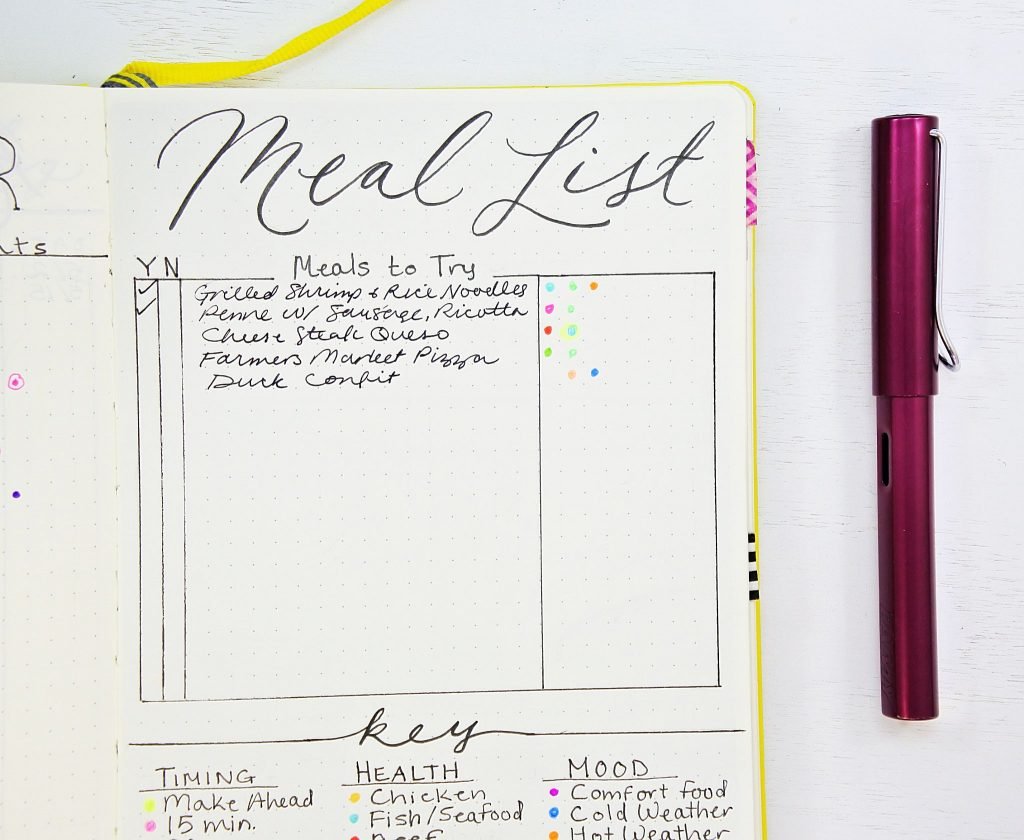 R
nts
Meal List
Y N Meals to Try
Grilled Shrimp & Rice Noodles
Penne w/ Sausage, Ricotta
Cheese Steak Queso
Farmers Market Pizza
Duck Confit
key
TIMING HEALTH MOOD
Make Ahead Chicken Comfort food
15 min. Fish/Seafood Cold Weather
Beef Hot Weather